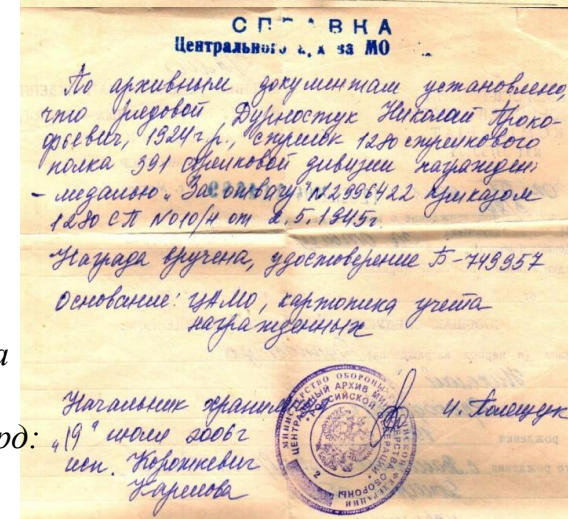 СПРАВКА
Центрального архива МО
По архивным документам установлено,
что рядовой Дурностук Николай Проко-
фьевич, 1924 г.р., стрелок 1280 стрелкового
полка 391 стрелковой дивизии награжден:
- медалью "За отвагу" №2996422 приказом
1280 СП №010/н от 2.5.1945г.
Награда вручена, удостоверение Б-749957
Основание: ЦАМО, картотека учета
награжденных
а
Начальник хранил
И. Полещук
рд:
"19" июля 2006г
исп. Корожкевич
Карпова
ЦЕНТРАЛЬНЫЙ АРХИВ МИНИСТЕРСТВА ОБОРОНЫ
РОССИЙСКОЙ ФЕДЕРАЦИИ
2